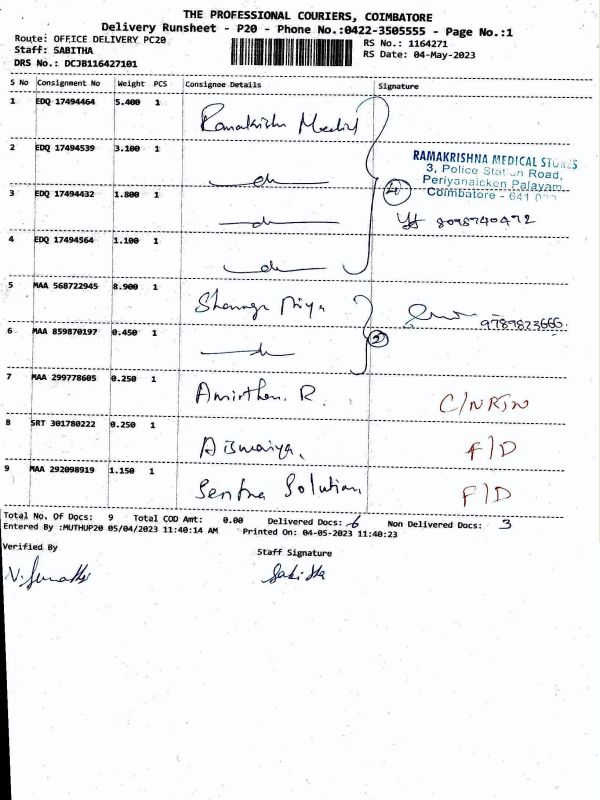 THE PROFESSIONAL COURIERS, COIMBATORE
Delivery Runsheet - P20 - Phone No.:0422-3505555 - Page No.:1
Route: OFFICE DELIVERY PC20
RS No.: 1164271
Staff: SABITHA
RS Date: 04-May-2023
DRS No.: DCJB116427101
S No Consignment No Weight PCS Consignee Details Signature
1 EDQ 17494464 5.400 1 Ramakrishn Medical
2 EDQ 17494539 3.100 1 do
RAMAKRISHNA MEDICAL STORES
3, Police Station Road,
Periyanaicken Palayam,
Coimbatore - 641
3 EDQ 17494432 1.800 1 do
8098740472
4 EDQ 17494564 1.100 1 do
5 MAA 568722945 8.900 1 Shanuga Priya
9789823666
6 MAA 859870197 0.450 1 do
2
7 MAA 299778605 0.250 1 Amirthan. R. C/NRTN
8 SRT 301780222 0.250 1 Aiswaiya. F/D
9 MAA 292098919 1.150 1 Sentra Solution F/D
Total No. Of Docs: 9 Total COD Amt: 0.00 Delivered Docs: 6 Non Delivered Docs: 3
Entered By :MUTHUP20 05/04/2023 11:40:14 AM Printed On: 04-05-2023 11:40:23
Verified By Staff Signature
Sabitha